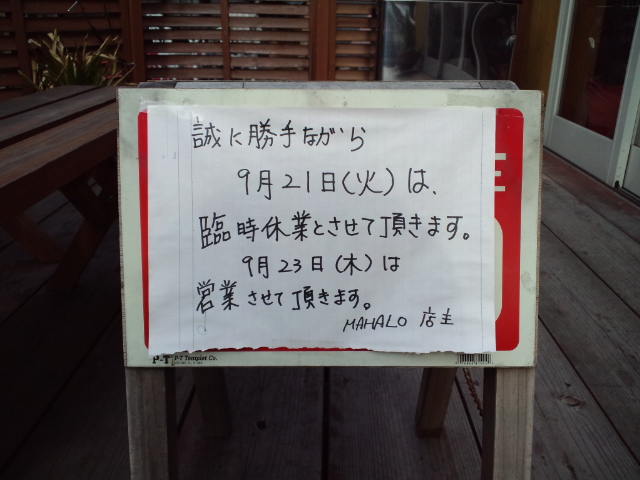 誠に勝手ながら
9月21日(火)は、
臨時休業とさせて頂きます。
9月23日(木)は
営業させて頂きます。
MAHALO 店主
P-T P-T Templet Co.